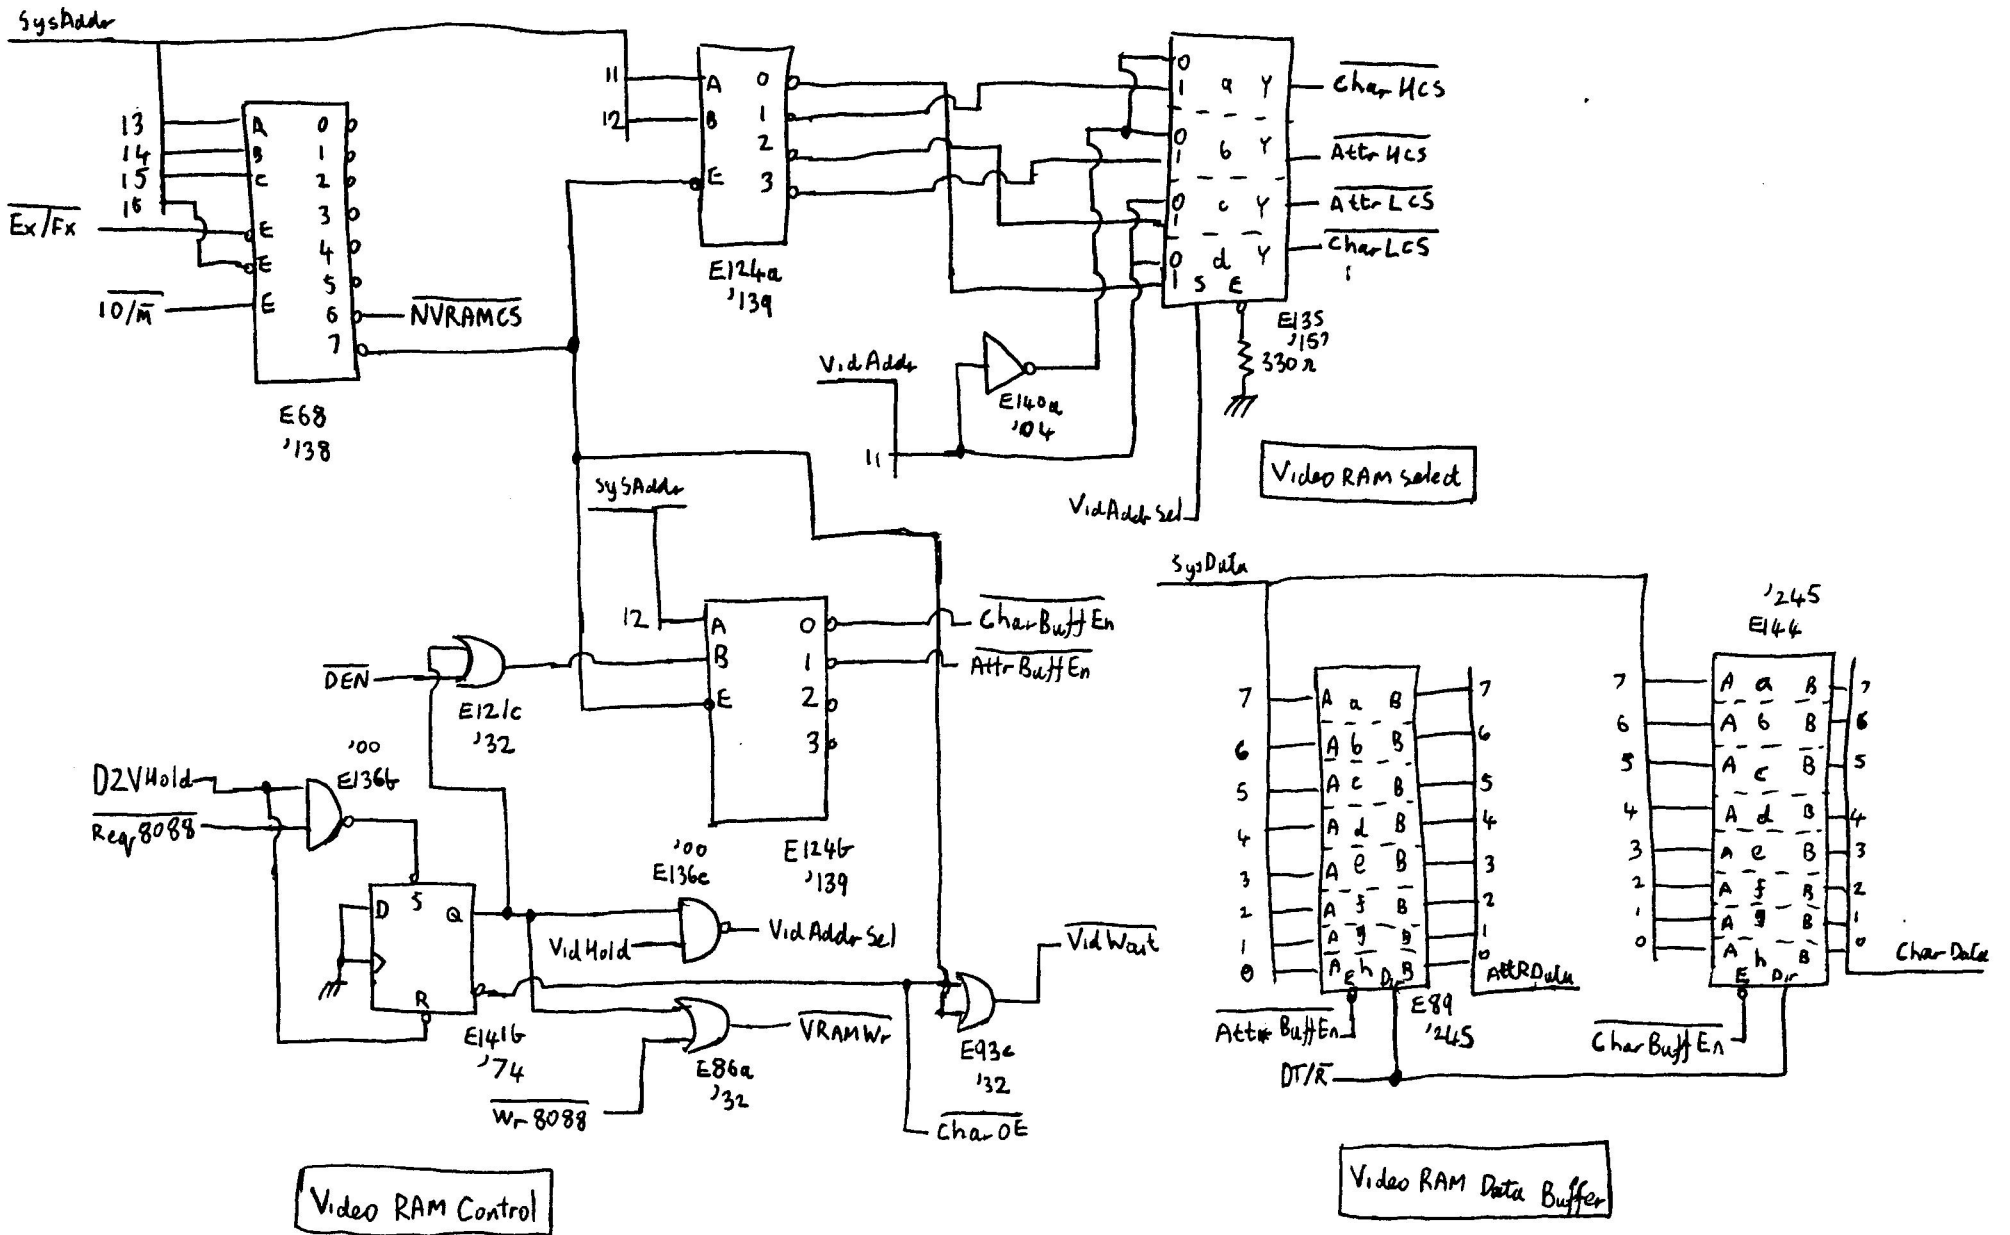 SysAddr
13
14
15
16
Ex/Fx
IO/M
A
B
C
E
E
E
0
1
2
3
4
5
6
7
NVRAMCS
E68
'138
11
12
A
B
E
0
1
2
3
E124a
'139
0
1
a
Y
CharHCS
0
1
b
Y
AttrHCS
0
1
c
Y
AttrLCS
0
1
d
Y
CharLCS
S
E
E135
'157
330Ω
VidAddr
11
E140a
'04
VidAddrSel
Video RAM Select
SysAddr
12
A
B
E
0
1
2
3
CharBuffEn
AttrBuffEn
E124b
'139
DEN
E121c
'32
'00
E136b
D2VHold
Req8088
D
S
Q
R
E141b
'74
'00
E136c
VidHold
VidAddrSel
VRAMWr
E86a
'32
Wr8088
VidWait
E93c
'32
CharOE
Video RAM Control
SysData
7
6
5
4
3
2
1
0
A a B
A b B
A c B
A d B
A e B
A f B
A g B
A h B
E
Dir
7
6
5
4
3
2
1
0
AttRData
E89
'245
AttrBuffEn
DT/R
'245
E144
7
6
5
4
3
2
1
0
A a B
A b B
A c B
A d B
A e B
A f B
A g B
A h B
E
Dir
7
6
5
4
3
2
1
0
CharData
CharBuffEn
Video RAM Data Buffer